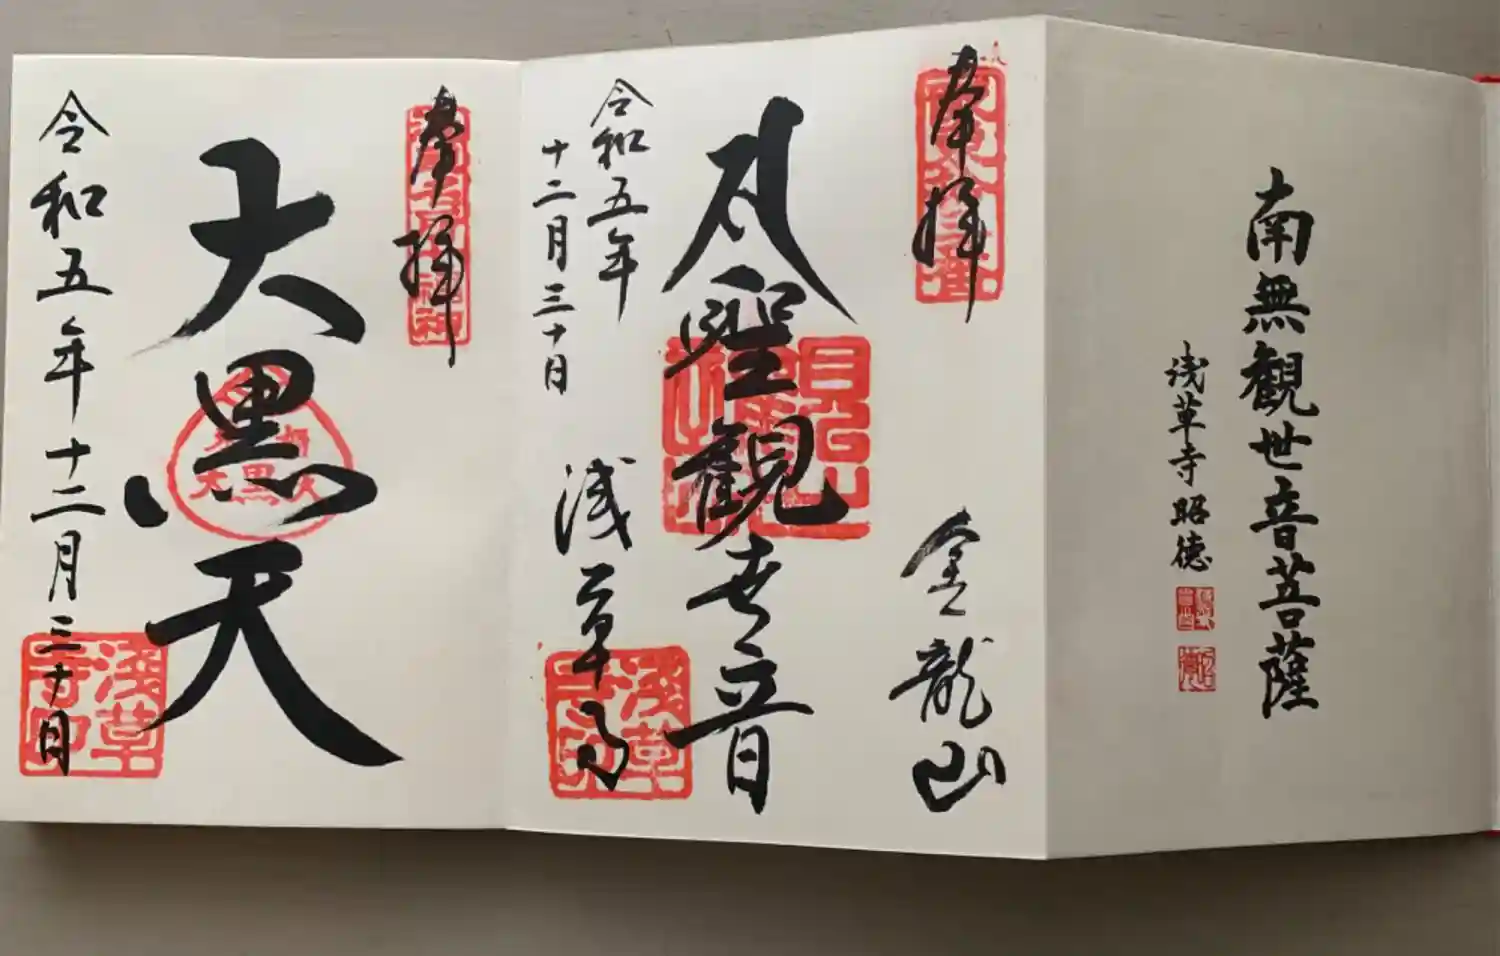 南無観世音菩薩
浅草寺昭徳
奉拝
金龍山
聖観世音
令和五年
十二月三十日
浅草寺
浅草
奉拝
大黒天
大黒天
令和五年十二月三十日
浅草
寺印